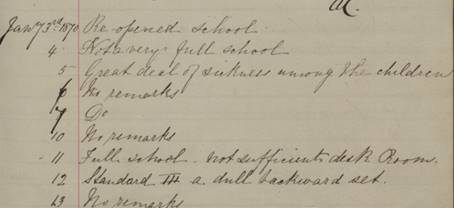 Jany 3rd 1870 Re opened school
4 Not a very full school
5 Great deal of sickness among the children
6 No remarks
7 Do
10 No remarks
11 Full school - not sufficient desk Room.
12 Standard III a dull backward set.
13 No remarks